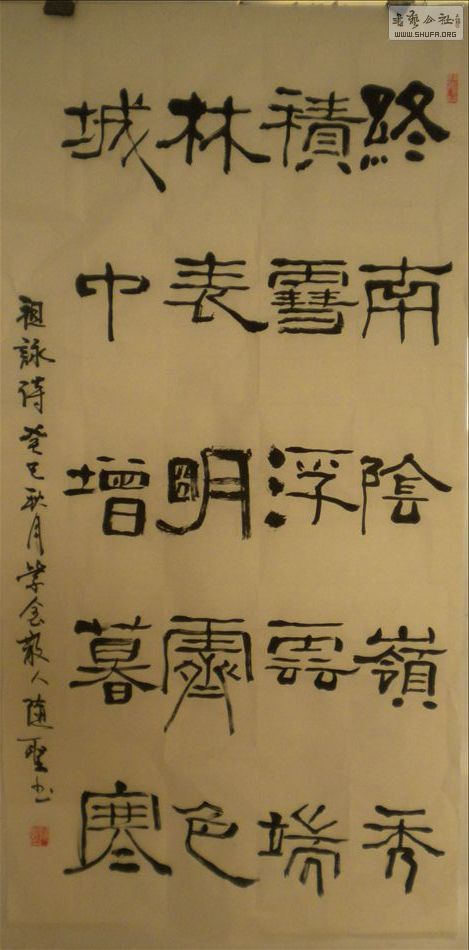 終南陰嶺秀
積雪浮雲端
林表明霽色
城中增暮寒
祖詠詩 癸巳秋月紫金散人隨聖書
WWW.SHUFA.ORG